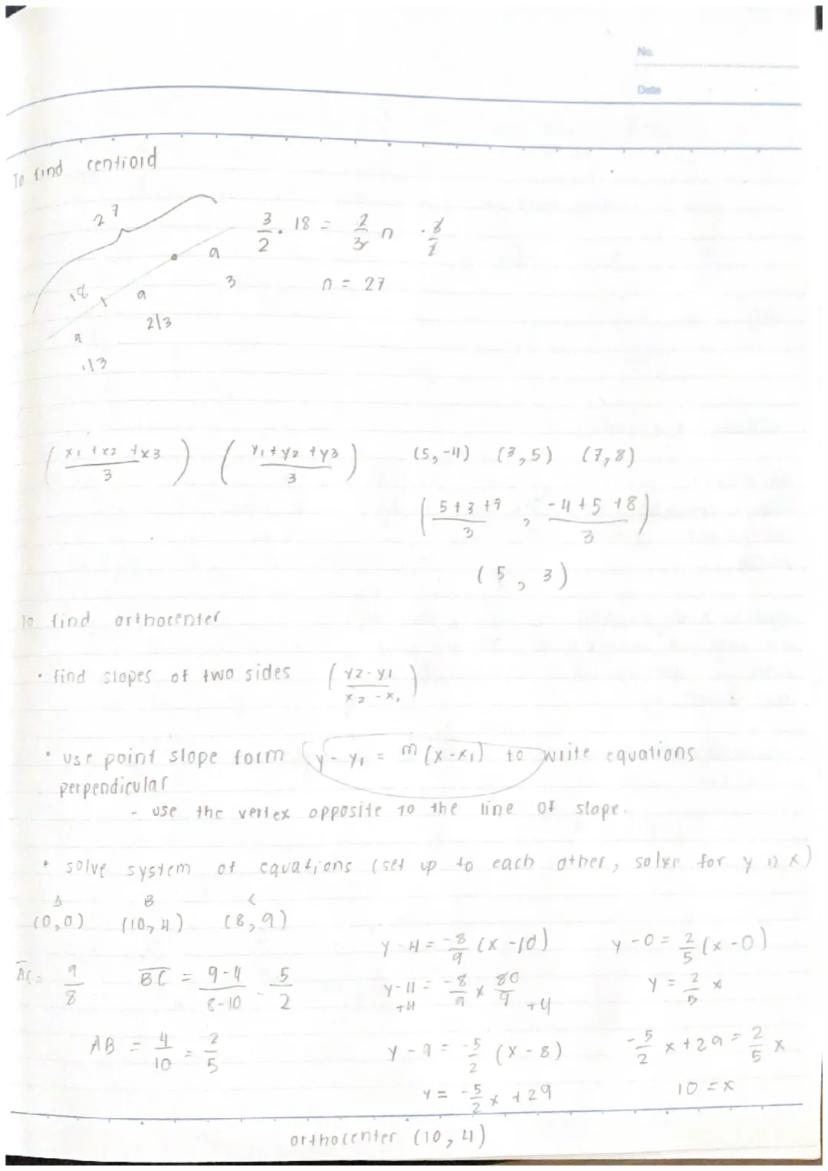 No.
Date
To find centroid
27
3/2 . 18 = 2/3 n . 3/2
n = 27
18
9
9
3
2/3
9
1/3
(x1 + x2 + x3 / 3) (y1 + y2 + y3 / 3)
(5, -4) (3, 5) (7, 8)
(5+3+7 / 3 , -4+5+8 / 3)
(5, 3)
To find orthocenter
• find slopes of two sides (y2-y1 / x2-x1)
• use point slope form (y - y1 = m(x-x1) to write equations
perpendicular
- use the vertex opposite to the line of slope.
• solve system of equations (set up to each other, solve for y n x)
A B C
(0,0) (10,4) (8,9)
AC = 9/8
BC = 9-4 / 8-10 - 5/2
AB = 4/10 = 2/5
y-4 = -8/9 (x-10)
y-4 = -8/9 x 80/9
+4 +4
y-9 = -5/2 (x-8)
y = -5/2 x + 29
y-0 = 2/5 (x-0)
y = 2/5 x
-5/2 x + 29 = 2/5 x
10 = x
orthocenter (10, 4)